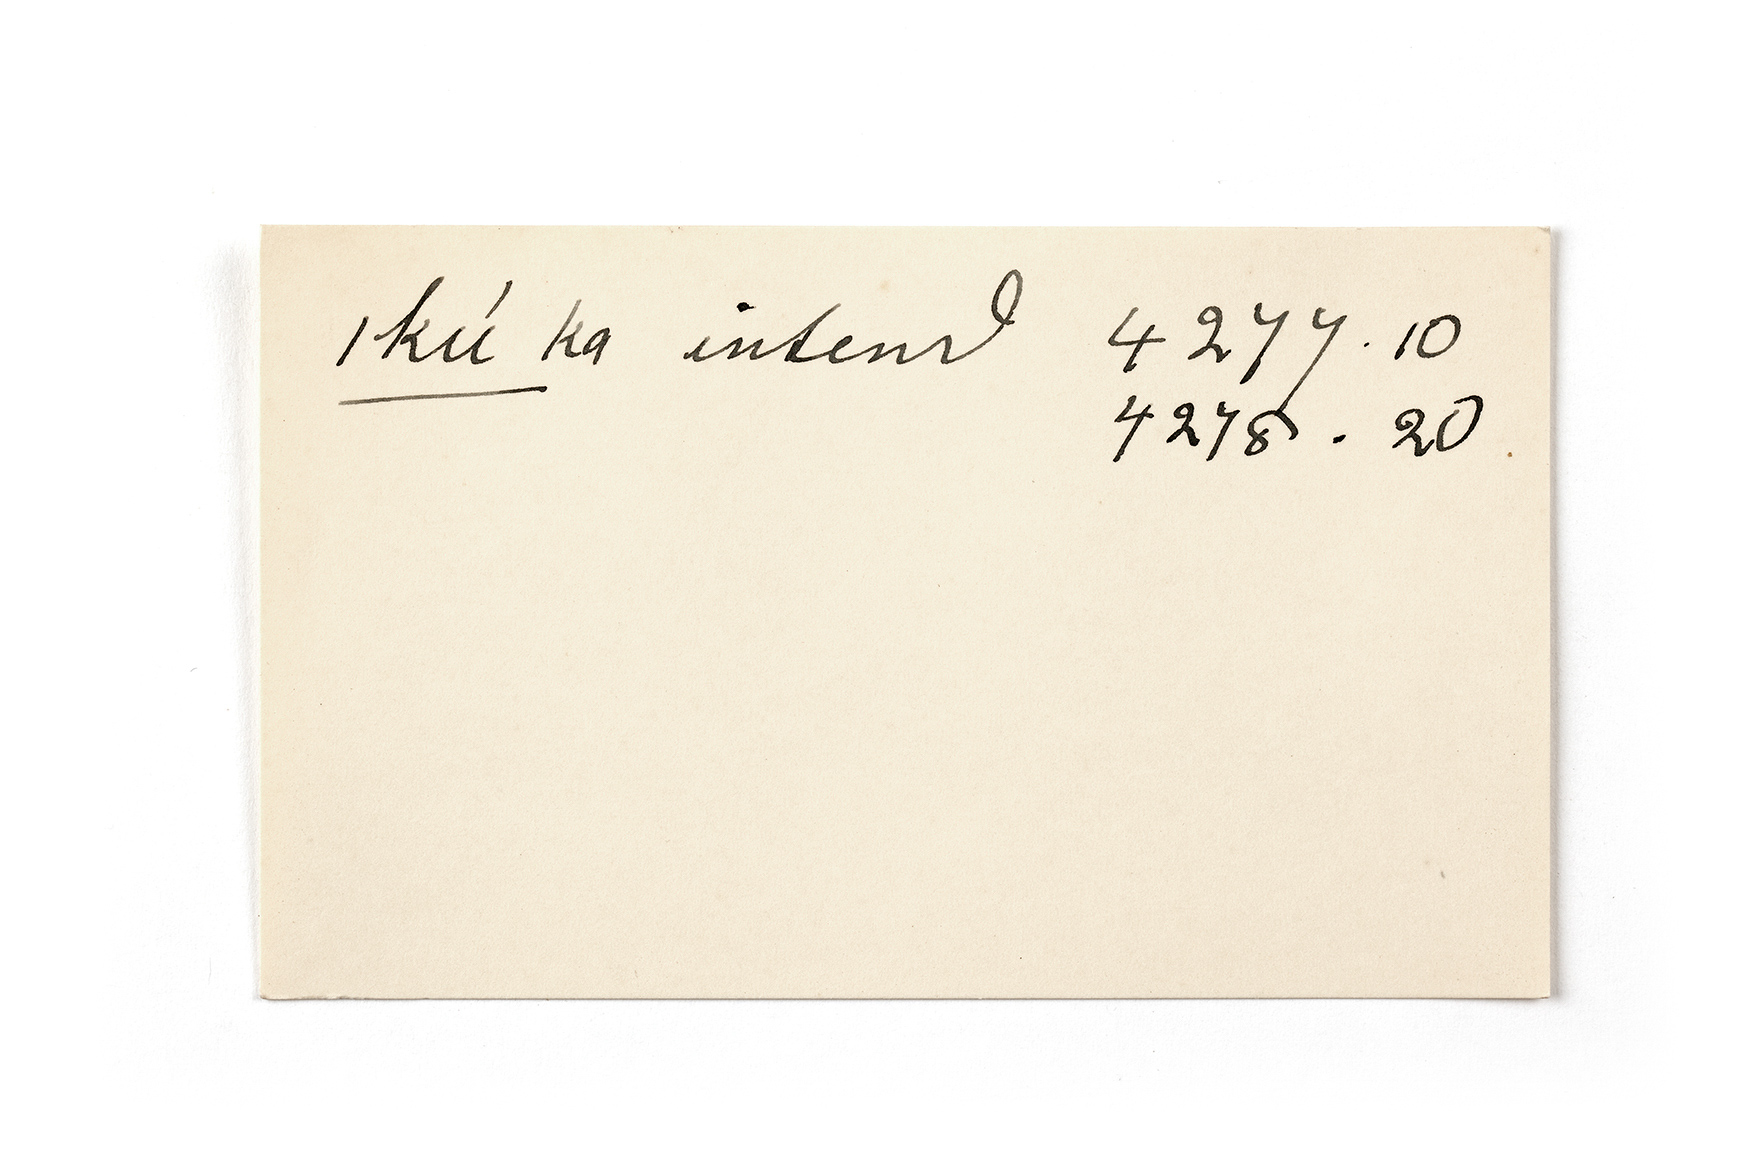 ikú ka intend 4277.10
4278.20